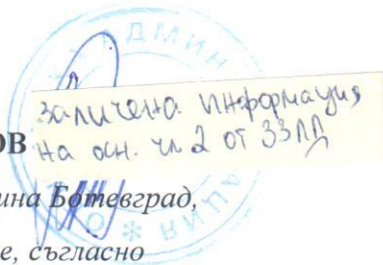 АДМИН
заличена информация
ОВ на осн. чл 2 от ЗЗЛД
ина Ботевград,
е, съгласно